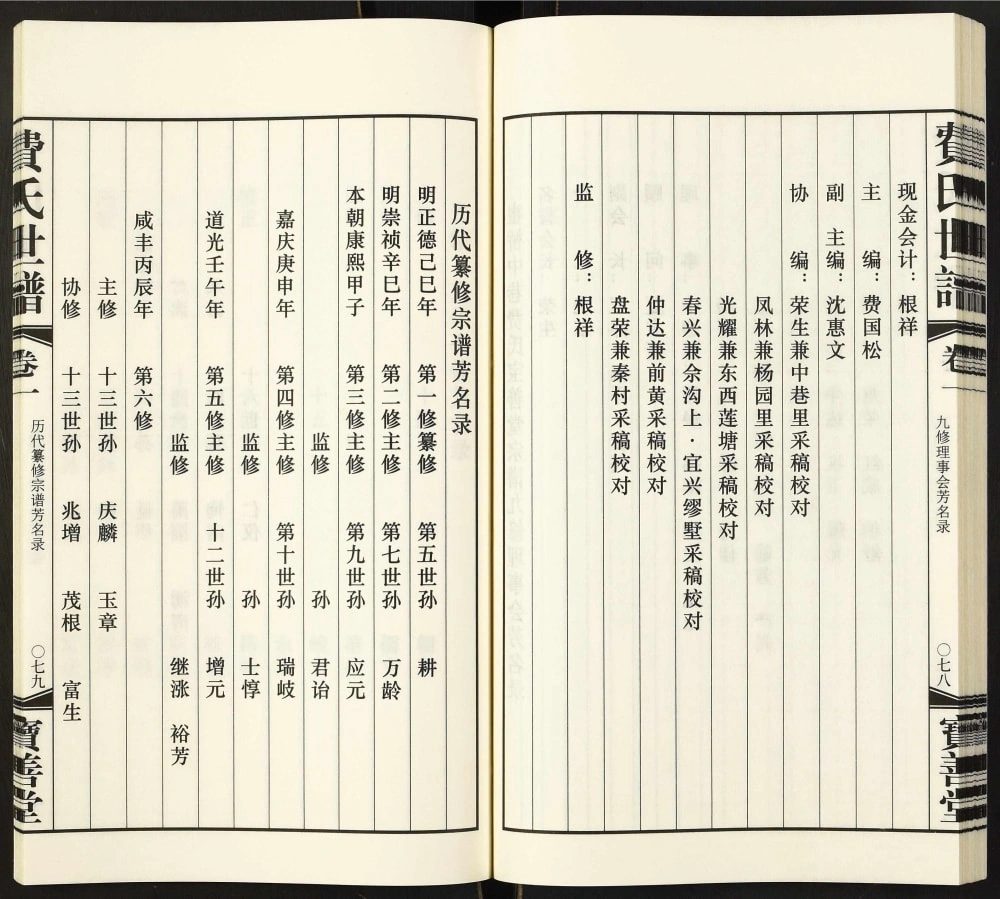 費氏世譜
卷一
九修理事会芳名录
〇七八
寶善堂
现金会计：根祥
主　编：费国松
副　主编：沈惠文
协　编：荣生兼中巷里采稿校对
凤林兼杨园里采稿校对
光耀兼东西莲塘采稿校对
春兴兼佘沟上·宜兴缪墅采稿校对
仲达兼前黄采稿校对
盘荣兼秦村采稿校对
监　修：根祥
历代纂修宗谱芳名录
明正德己巳年　第一修纂修　第五世孙　耕
明崇祯辛巳年　第二修主修　第七世孙　万龄
本朝康熙甲子　第三修主修　第九世孙　应元
监修　孙　君诒
嘉庆庚申年　第四修主修　第十世孙　瑞岐
监修　孙　士惇
道光壬午年　第五修主修　十二世孙　增元
监修　继涨　裕芳
咸丰丙辰年　第六修
主修　十三世孙　庆麟　玉章
协修　十三世孙　兆增　茂根　富生
費氏世譜
卷一
历代纂修宗谱芳名录
〇七九
寶善堂